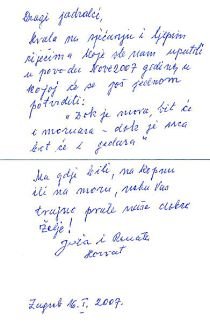 Dragi jadralci,
hvala na sjećanju i lijepim
riječima koje ste nam uputili
u povodu Nove 2007 godine, u
kojoj će se još jednom
potvrditi:
"Dok je mora, bit će
i mornara - dok je srca
bit će i jedara"
Ma gdje bili, na kopnu
ili na moru, neka Vas
trajno prate naše dobre
želje!
Juža i Renata
Horvat
Zagreb 16. I. 2007.